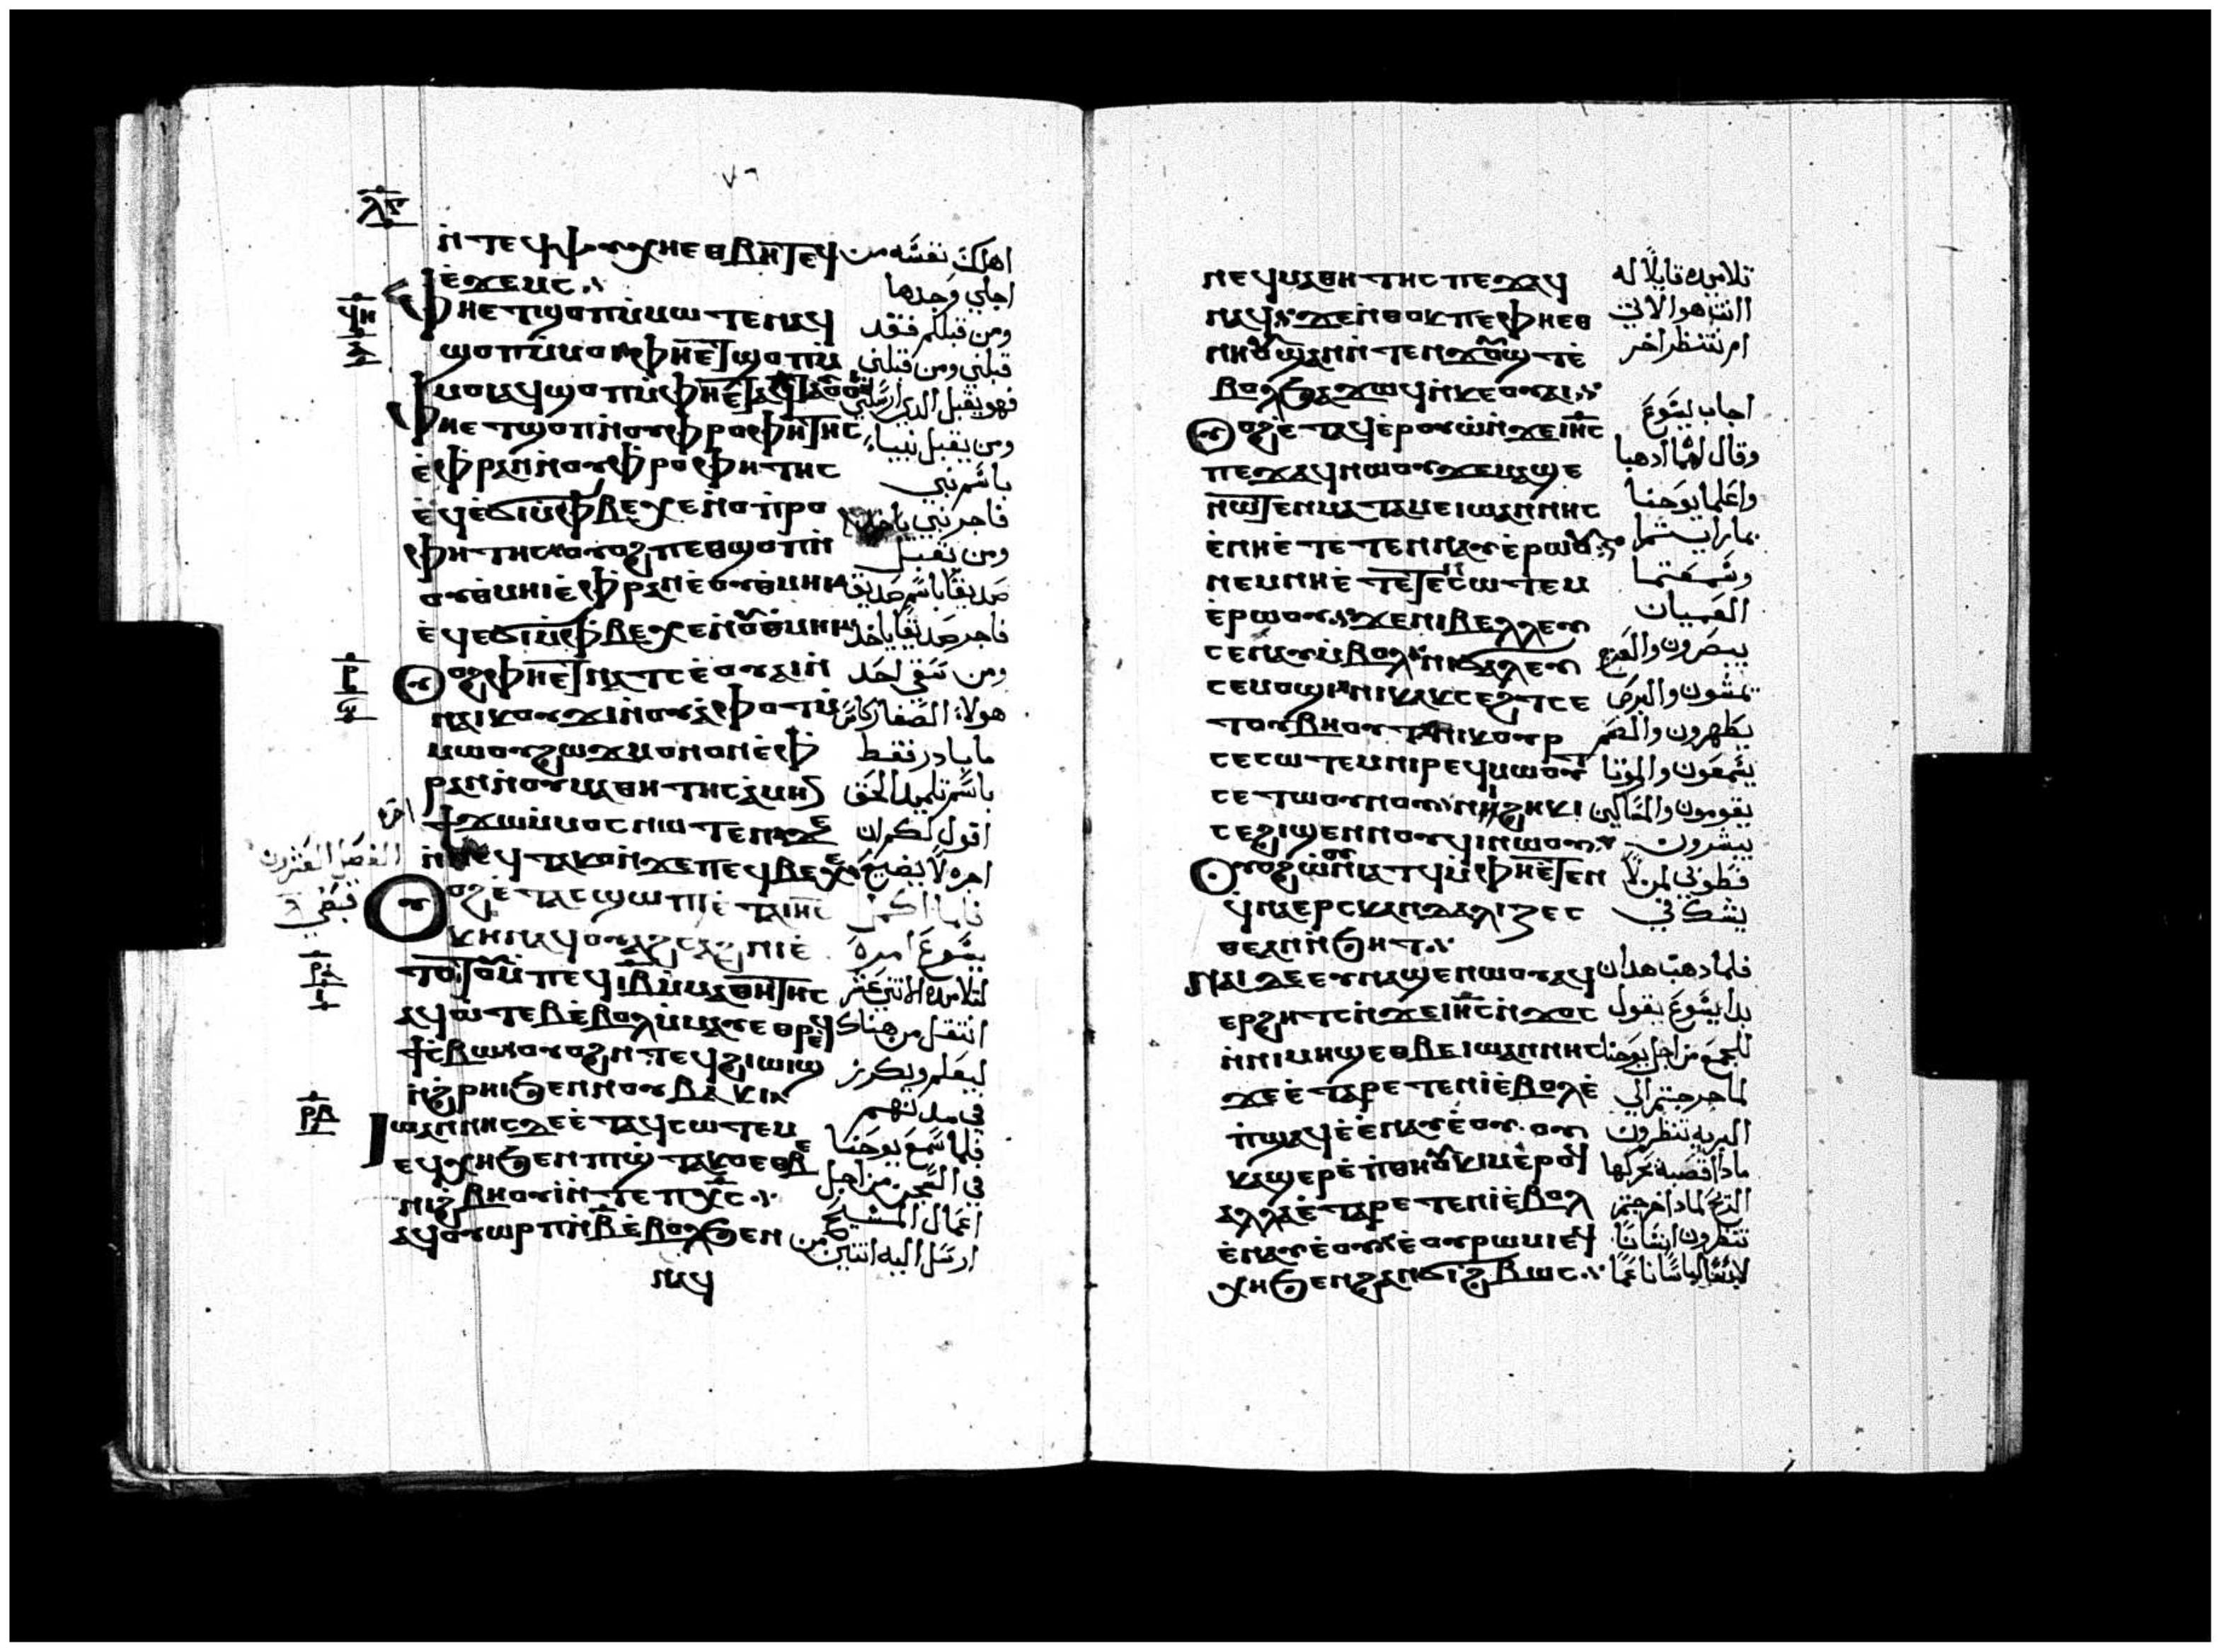 ٧٦
ⲗⲅ
ⲛ̀ⲧⲉϥⲯⲩⲭⲏ ⲉⲑⲃⲏⲧϥ اهلك نفسه من
ⲉ̀ϫⲉⲙⲥ اجلي وجدها
ϥⲏ ⲫⲏⲉⲧϣⲟⲡ ⲙ̀ⲙⲱⲧⲉⲛ ⲁϥ ومن قبلكم فقد
ϣⲟⲡ ⲙ̀ⲙⲟⲓ ⲫⲏⲉⲧϣⲟⲡ ⲙ̀ قبلني ومن قبلني
ⲙⲟⲓ ⲁϥϣⲟⲡ ⲙ̀ⲫⲏⲉ̀ⲧⲁϥⲧⲁⲟⲩⲟⲓ فهو يقبل الذي ارسلني
ⲫⲏⲉⲧϣⲟⲡ ⲛ̀ⲟⲩⲡ̀ⲣⲟⲫⲏⲧⲏⲥ ومن يقبل نبياء
ⲉ̀ⲫ̀ⲣⲁⲛ ⲛ̀ⲟⲩⲡ̀ⲣⲟⲫⲏⲧⲏⲥ باسم نبي
ⲉϥⲉ̀ϭⲓ ⲙ̀ⲫ̀ⲃⲉⲭⲉ ⲛ̀ⲟⲩⲡ̀ⲣⲟ فاجر نبي ياخذ
ⲫⲏⲧⲏⲥ ⲟⲩⲟϩ ⲡⲉⲑϣⲟⲡ ⲛ̀ ومن يقبل
ⲟⲩⲑ̀ⲙⲏⲓ ⲉ̀ⲫ̀ⲣⲁⲛ ⲛ̀ⲟⲩⲑ̀ⲙⲏⲓ صديقًا باسم صديق
ⲉϥⲉ̀ϭⲓ ⲙ̀ⲫ̀ⲃⲉⲭⲉ ⲛ̀ⲟⲩⲑ̀ⲙⲏⲓ فاجر صديقًا ياخذ
ⲣ ⲟⲩⲟϩ ⲫⲏⲉⲧⲛⲁⲧⲥⲉ ⲟⲩⲁⲓ ⲛ̀ ومن سقى احد
ⲛⲁⲓⲕⲟⲩϫⲓ ⲛ̀ⲟⲩⲁ̀ⲫⲟⲧ ⲙ̀ هولاء الصغار كاس
ⲙⲱⲟⲩ ϩⲱϫ ⲙⲟⲛⲟⲛ ⲉ̀ⲫ̀ ما بارد فقط
ⲣⲁⲛ ⲛ̀ⲟⲩⲙⲁⲑⲏⲧⲏⲥ ⲁ̀ⲙⲏⲛ باسم تلميد الحق
ϯϫⲱ ⲙ̀ⲙⲟⲥ ⲛⲱⲧⲉⲛ ϫⲉ اقول لكم ان
ⲛ̀ⲛⲉϥⲧⲁⲕⲟ ⲛ̀ϫⲉ ⲡⲉϥⲃⲉⲭⲉ اجره لا يضيع
الفصل العشرون
ⲟⲩⲟϩ ⲉ̀ⲧⲁⲥϣⲱⲡⲓ ⲉ̀ⲧⲁ ⲓⲏⲥ فلما اكمل
ⲕⲏⲛ ⲁϥⲟⲩⲁϩⲥⲁϩⲛⲓ ⲉ̀ يسوع امره
ⲣⲁ ⲧⲟⲧⲟⲩ ⲙ̀ⲡⲉϥⲓⲃ ⲙ̀ⲙⲁⲑⲏⲧⲏⲥ لتلاميده الاتني عشر
ⲁϥⲟⲩⲱⲧⲉⲃ ⲉ̀ⲃⲟⲗ ⲙ̀ⲙⲁⲩ ⲉⲑⲣⲉϥ انتقل من هناك
ϯⲥ̀ⲃⲱ ⲟⲩⲟϩ ⲛ̀ⲧⲉϥϩⲓⲱⲓϣ ليعلم ويكرز
ⲛ̀ϩ̀ⲣⲏⲓ ϧⲉⲛ ⲛⲟⲩⲃⲁⲕⲓ في مدنهم
ⲣⲃ Ⲓⲱⲁⲛⲛⲏⲥ ⲇⲉ ⲉ̀ⲧⲁϥⲥⲱⲧⲉⲙ فلما سمع يوحنا
ⲉϥⲭⲏ ϧⲉⲛ ⲡⲓϣ̀ⲧⲉⲕⲟ ⲉⲑⲃⲉ في السجن من اجل
ⲛⲓϩ̀ⲃⲏⲟⲩⲓ ⲛ̀ⲧⲉ ⲡⲭⲥ اعمال المسيح
ⲁϥⲟⲩⲱⲣⲡ ⲛ̀ⲃ ⲉ̀ⲃⲟⲗ ϧⲉⲛ ارسل اليه اتنين من
ⲛⲁϥ
ⲛⲉϥⲙⲁⲑⲏⲧⲏⲥ ⲡⲉϫⲁϥ تلاميده قايلًا له
ⲛⲁϥ ϫⲉ ⲛ̀ⲑⲟⲕ ⲡⲉ ⲫⲏⲉⲑ انت هو الاتي
ⲛⲏⲟⲩ ϣⲁⲛ ⲛ̀ⲧⲉⲛϫⲟⲩϣⲧ ⲉ̀ ام ننتظر اخر
ⲃⲟⲗ ϧⲁϫⲱϥ ⲛ̀ⲕⲉⲟⲩⲁⲓ
ⲟⲩⲟϩ ⲉ̀ⲧⲁϥⲉⲣⲟⲩⲱ̀ ⲛ̀ϫⲉ ⲓⲏⲥ اجاب يسوع
ⲡⲉϫⲁϥ ⲛⲱⲟⲩ ϫⲉ ⲙⲁϣⲉ وقال لهما ادهبا
ⲛⲱⲧⲉⲛ ⲙⲁⲧⲁⲙⲉ ⲓⲱⲁⲛⲛⲏⲥ واعلما يوحنا
ⲉ̀ⲛⲏⲉ̀ⲧⲉⲧⲉⲛⲛⲁⲩ ⲉ̀ⲣⲱⲟⲩ بما رايتما
ⲛⲉⲙ ⲛⲏⲉ̀ⲧⲉⲧⲉⲛⲥⲱⲧⲉⲙ وسمعتما
ⲉ̀ⲣⲱⲟⲩ ϫⲉ ⲛⲓⲃⲉⲗⲗⲉⲩ العميان
ⲥⲉⲛⲁⲩ ⲙ̀ⲃⲟⲗ ⲛⲓϭⲁⲗⲉⲩ يبصرون والعرج
ⲥⲉⲙⲟϣⲓ ⲛⲓⲕⲁⲕⲥⲉϩⲧ ⲥⲉ يمشون والبرص
ⲧⲟⲩⲃⲏⲟⲩⲧ ⲛⲓⲕⲟⲩⲣ يطهرون والصم
ⲥⲉⲥⲱⲧⲉⲙ ⲛⲓⲣⲉϥⲙⲱⲟⲩⲧ يسمعون والموتا
ⲥⲉⲧⲱⲟⲩⲛⲟⲩ ⲛⲓϩⲏⲕⲓ يقومون والمساكين
ⲥⲉϩⲓϣⲉⲛⲛⲟⲩϥⲓ ⲛⲱⲟⲩ يبشرون
ⲟⲩⲟϩ ⲱ̀ⲟⲩⲛⲓⲁⲧϥ ⲙ̀ⲫⲏⲉ̀ⲧⲉⲛ فطوبي لمن لا
ϥⲛⲁⲉⲣⲥⲕⲁⲛⲇⲁⲗⲓⲍⲉⲥ يشك في
ⲑⲉ ⲁⲛ ⲛ̀ϧⲏⲧ
ⲛⲁⲓ ⲇⲉ ⲉⲩⲛⲁϣⲉ ⲛⲱⲟⲩ ⲁϥ فلما دهب هدان
ⲉⲣϩⲏⲧⲥ ⲛ̀ϫⲉ ⲓⲏⲥ ⲛ̀ϫⲟⲥ بدا يسوع يقول
ⲛ̀ⲛⲓⲙⲏϣ ⲉⲑⲃⲉ ⲓⲱⲁⲛⲛⲏⲥ للجمع من اجل يوحنا
ϫⲉ ⲉ̀ⲧⲁⲣⲉⲧⲉⲛⲓ̀ ⲉ̀ⲃⲟⲗ ⲉ̀ لما خرجتم الي
ⲡ̀ϣⲁϥⲉ ⲉ̀ⲛⲁⲩ ⲉ̀ⲟⲩ ⲟⲩ البريه تنظرون
ⲕⲁϣ ⲉⲣⲉ ⲡ̀ⲑⲏⲟⲩ ⲕⲓⲙ ⲉ̀ⲣⲟϥ مادا اقصبة تحركها
ⲁⲗⲗⲁ ⲉ̀ⲧⲁⲣⲉⲧⲉⲛⲓ̀ ⲉ̀ⲃⲟⲗ الريح لمادا خرجتم
ⲉ̀ⲛⲁⲩ ⲉ̀ⲟⲩ ⲉ̀ⲟⲩⲣⲱⲙⲓ ⲉϥ تنظرون انسانًا
ⲭⲏ ϧⲉⲛ ϩⲁⲛϭⲓϩ̀ⲃⲱⲥ لباسًا ناعمًا